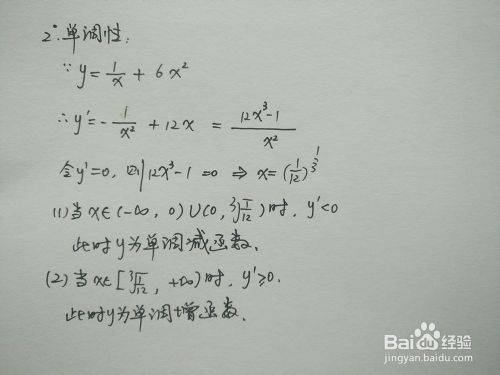 2°. 单调性:
∵ y = 1/x + 6x²
∴ y' = -1/x² + 12x = (12x³-1)/x²
令y'=0, 则12x³-1=0 ⇒ x=(1/12)^(1/3)
(1) 当x∈(-∞, 0)∪(0, ∛(1/12))时, y'<0
此时y为单调减函数.
(2) 当x∈[∛(1/12), +∞)时, y'≥0.
此时y为单调增函数.
Baidu经验
jingyan.baidu.com